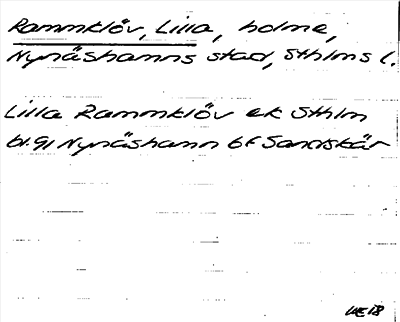 Rammklöv, Lilla, holme,
Nynäshamns stad, Sthlms l.
Lilla Rammklöv ek Sthlm
bl. 91 Nynäshamn 6f Sandskär